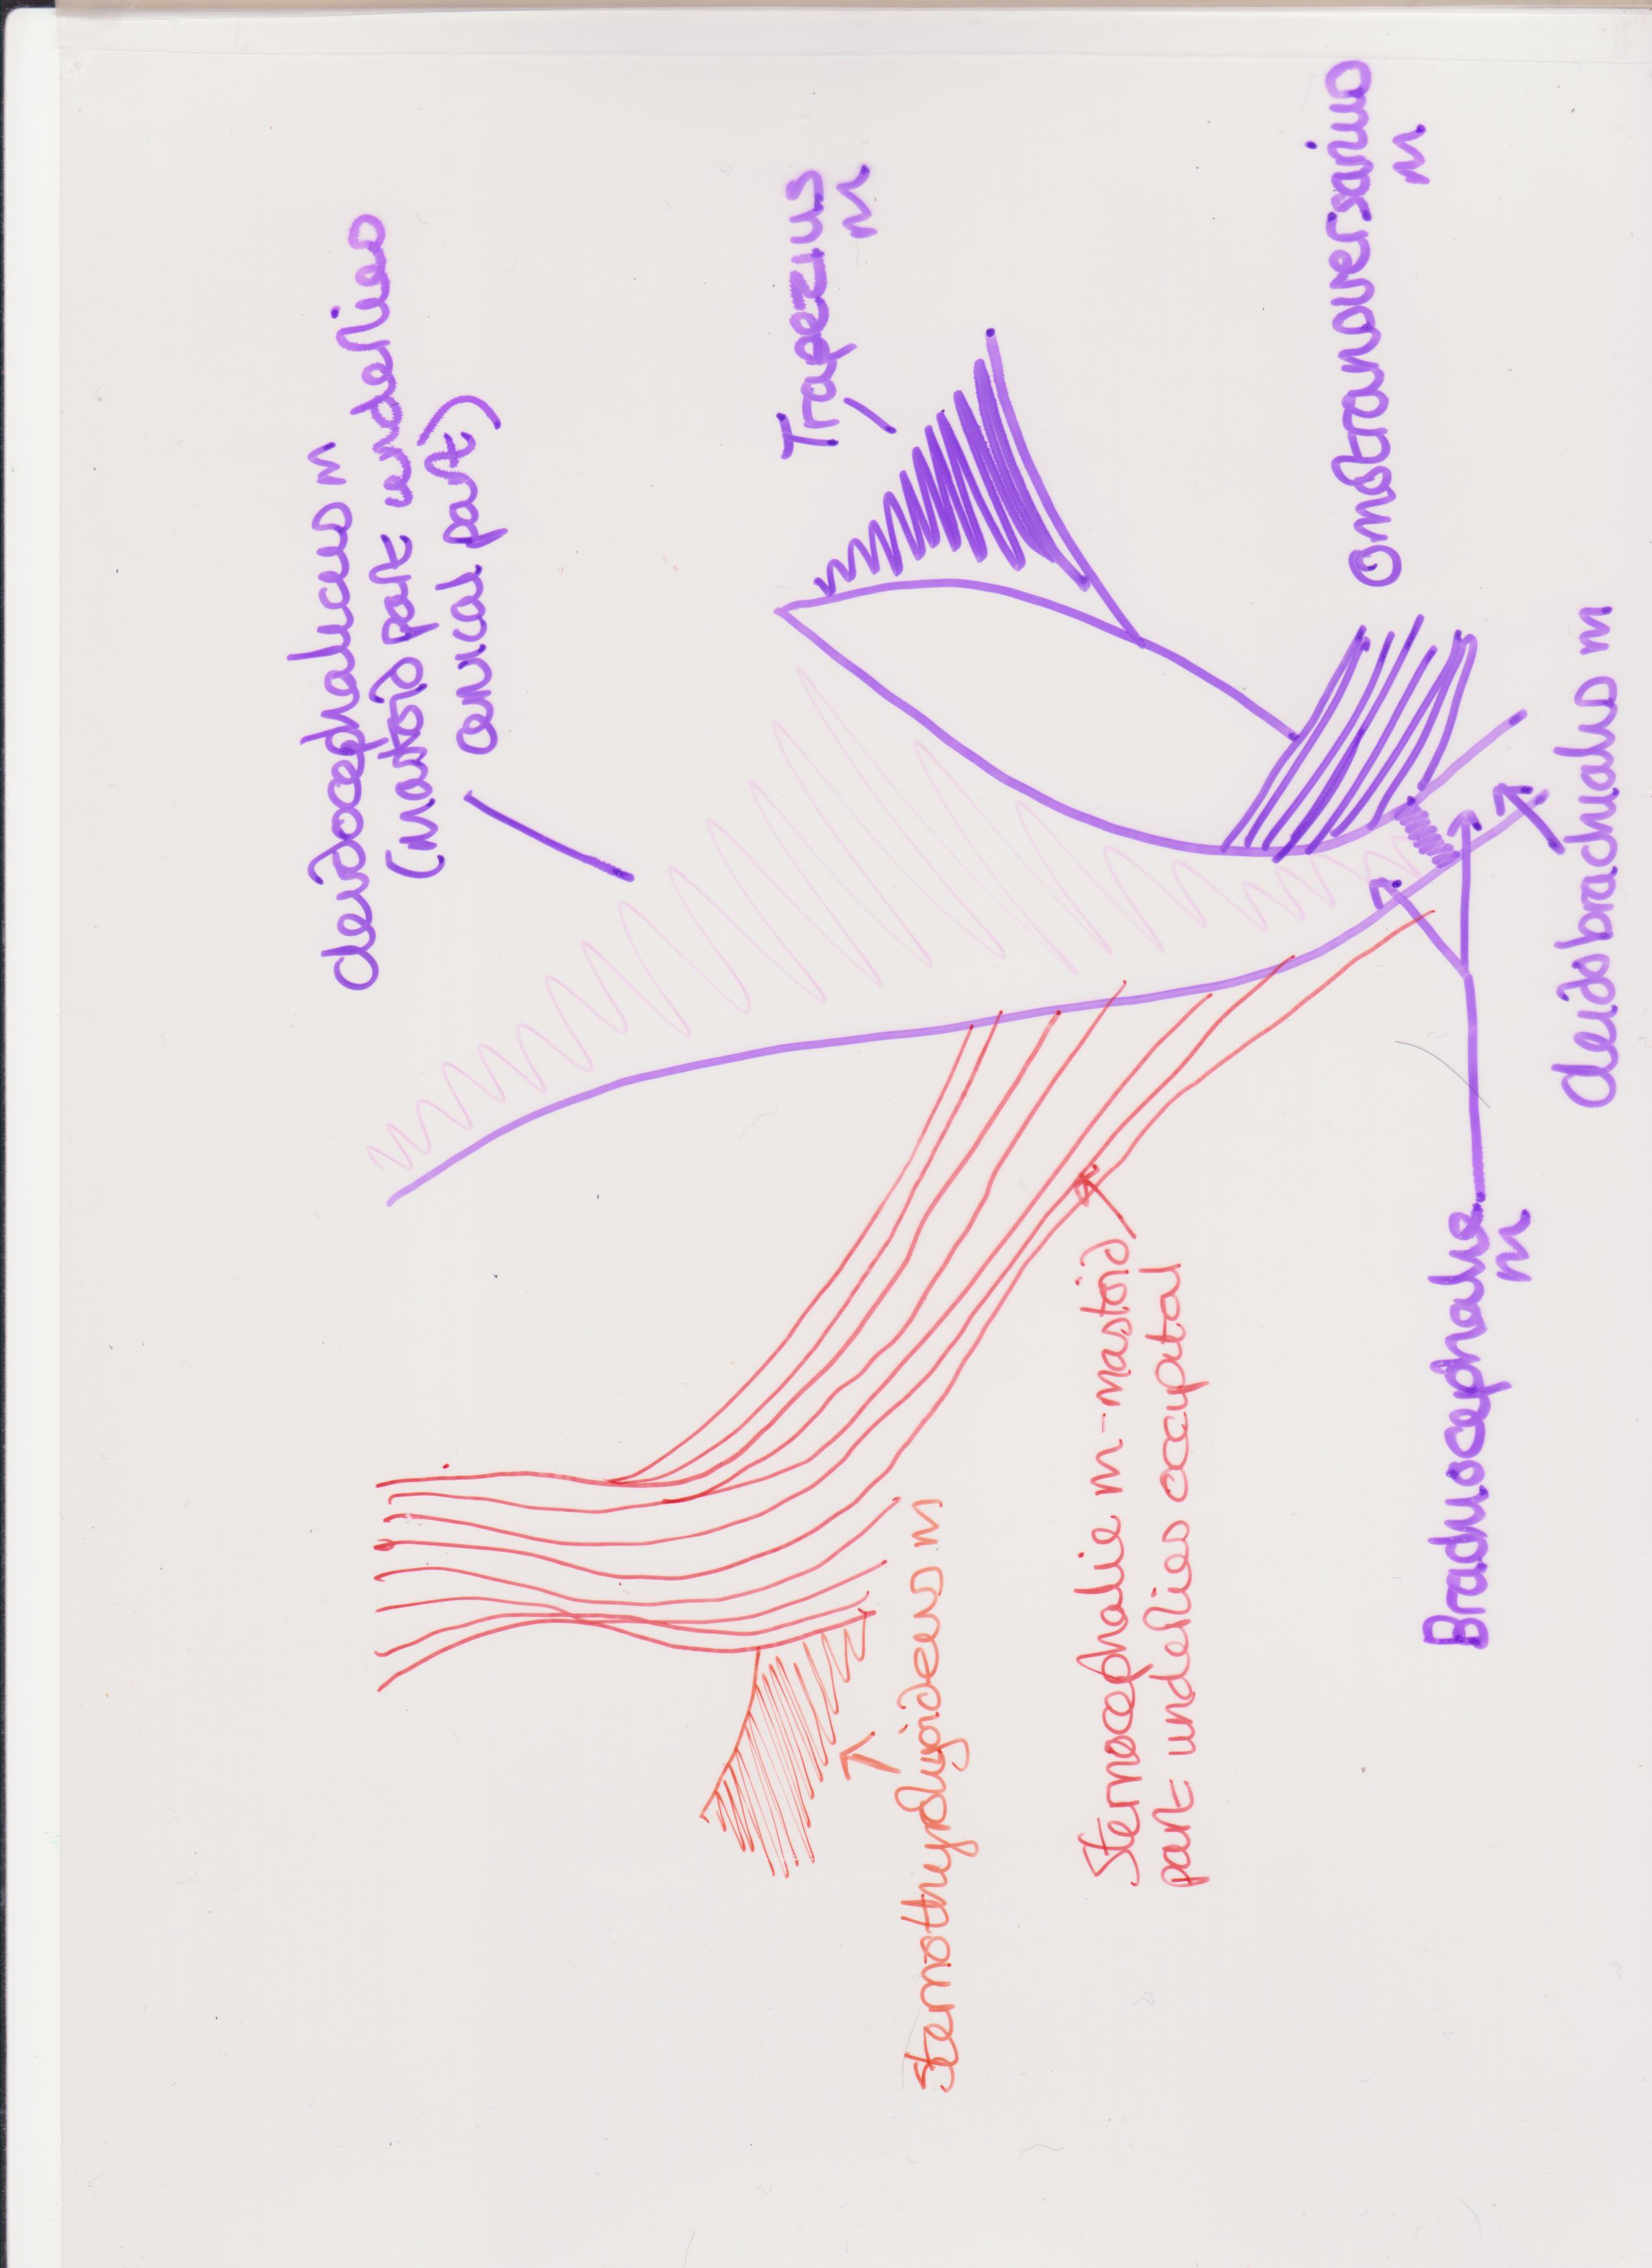 cleidocephalicus m
(mastoid part underlies
cervical part)
Trapezius
m
Omotransversarius
m
cleidobrachialis m
Brachiocephalic
m
Sternocephalic m-mastoid
part underlies occipital
Sternothyrohyoideus m